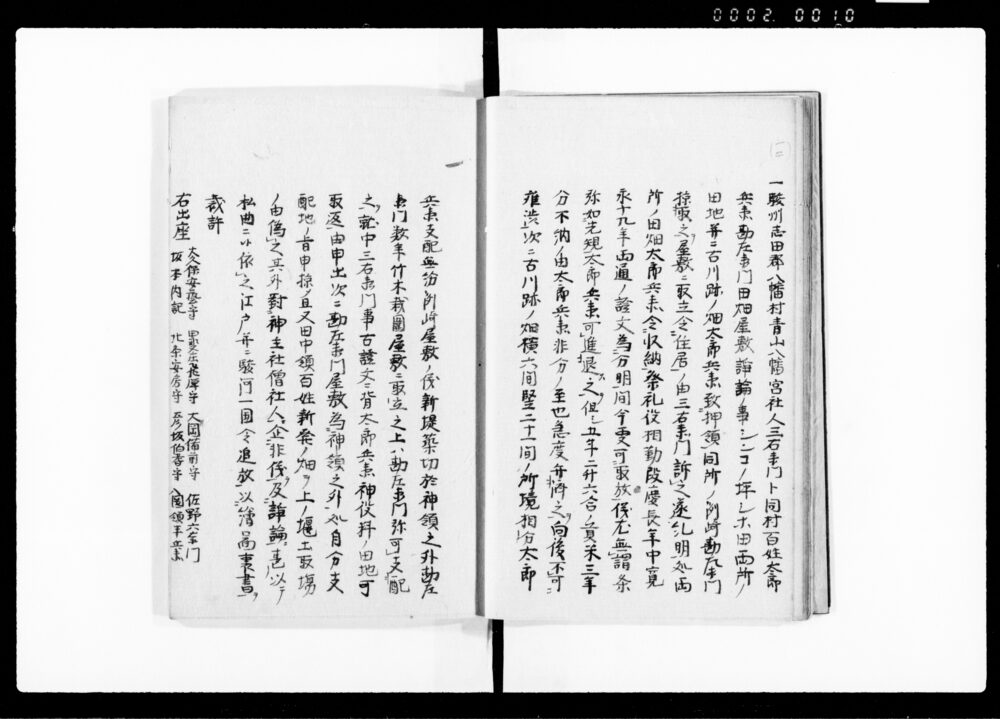 0002 0010
一駿州志田郡八幡村青山八幡宮社人三右衛門ト同村百姓太郎
兵衛勘左衛門田畑屋敷諍論ノ事シンコノ坪シホ田両所ノ
田地并ニ古川跡ノ畑太郎兵衛致押領同所ノ剛崎勘左衛門
掠取之屋敷ニ取立令住居ノ由三右衛門訴之遂糺明処両
所ノ田畑太郎兵衛令収納祭礼役相勤段慶長年中寛
永十九年両通ノ證文為分明間今更可取放儀尤無謂条
弥如先規太郎兵衛可進退之但シ五年二升六合ノ貢米三年
分不納ノ由太郎兵衛非分ノ至也急度弁済之向後不可
難渋次ニ古川跡ノ畑横六間竪二十一間ノ所境相分太郎
兵衛支配無紛剛崎屋敷ノ儀新堤築切於神領之外勘左
衛門数年竹木栽圍屋敷ニ取立之上ハ勘左衛門弥可支配
之就中三右衛門事古證文ニ背太郎兵衛神役料ノ田地可
取返由申出次ニ勘左衛門屋敷為神領之外処自分支
配地ノ旨申掠ノ且又田中領百姓新発ノ畑ノ上ノ堰土取場
ノ由偽之其外對神主社僧社人企非儀及諍論甚以テ
私曲ニ候依之江戸并ニ駿河一国令追放以繪図裏書
裁許
右出座 大久保安藝守 甲斐庄飛騨守 大岡備前守 佐野六右衛門
坂本内記 北条安房守 彦坂伯耆守 国領半兵衛